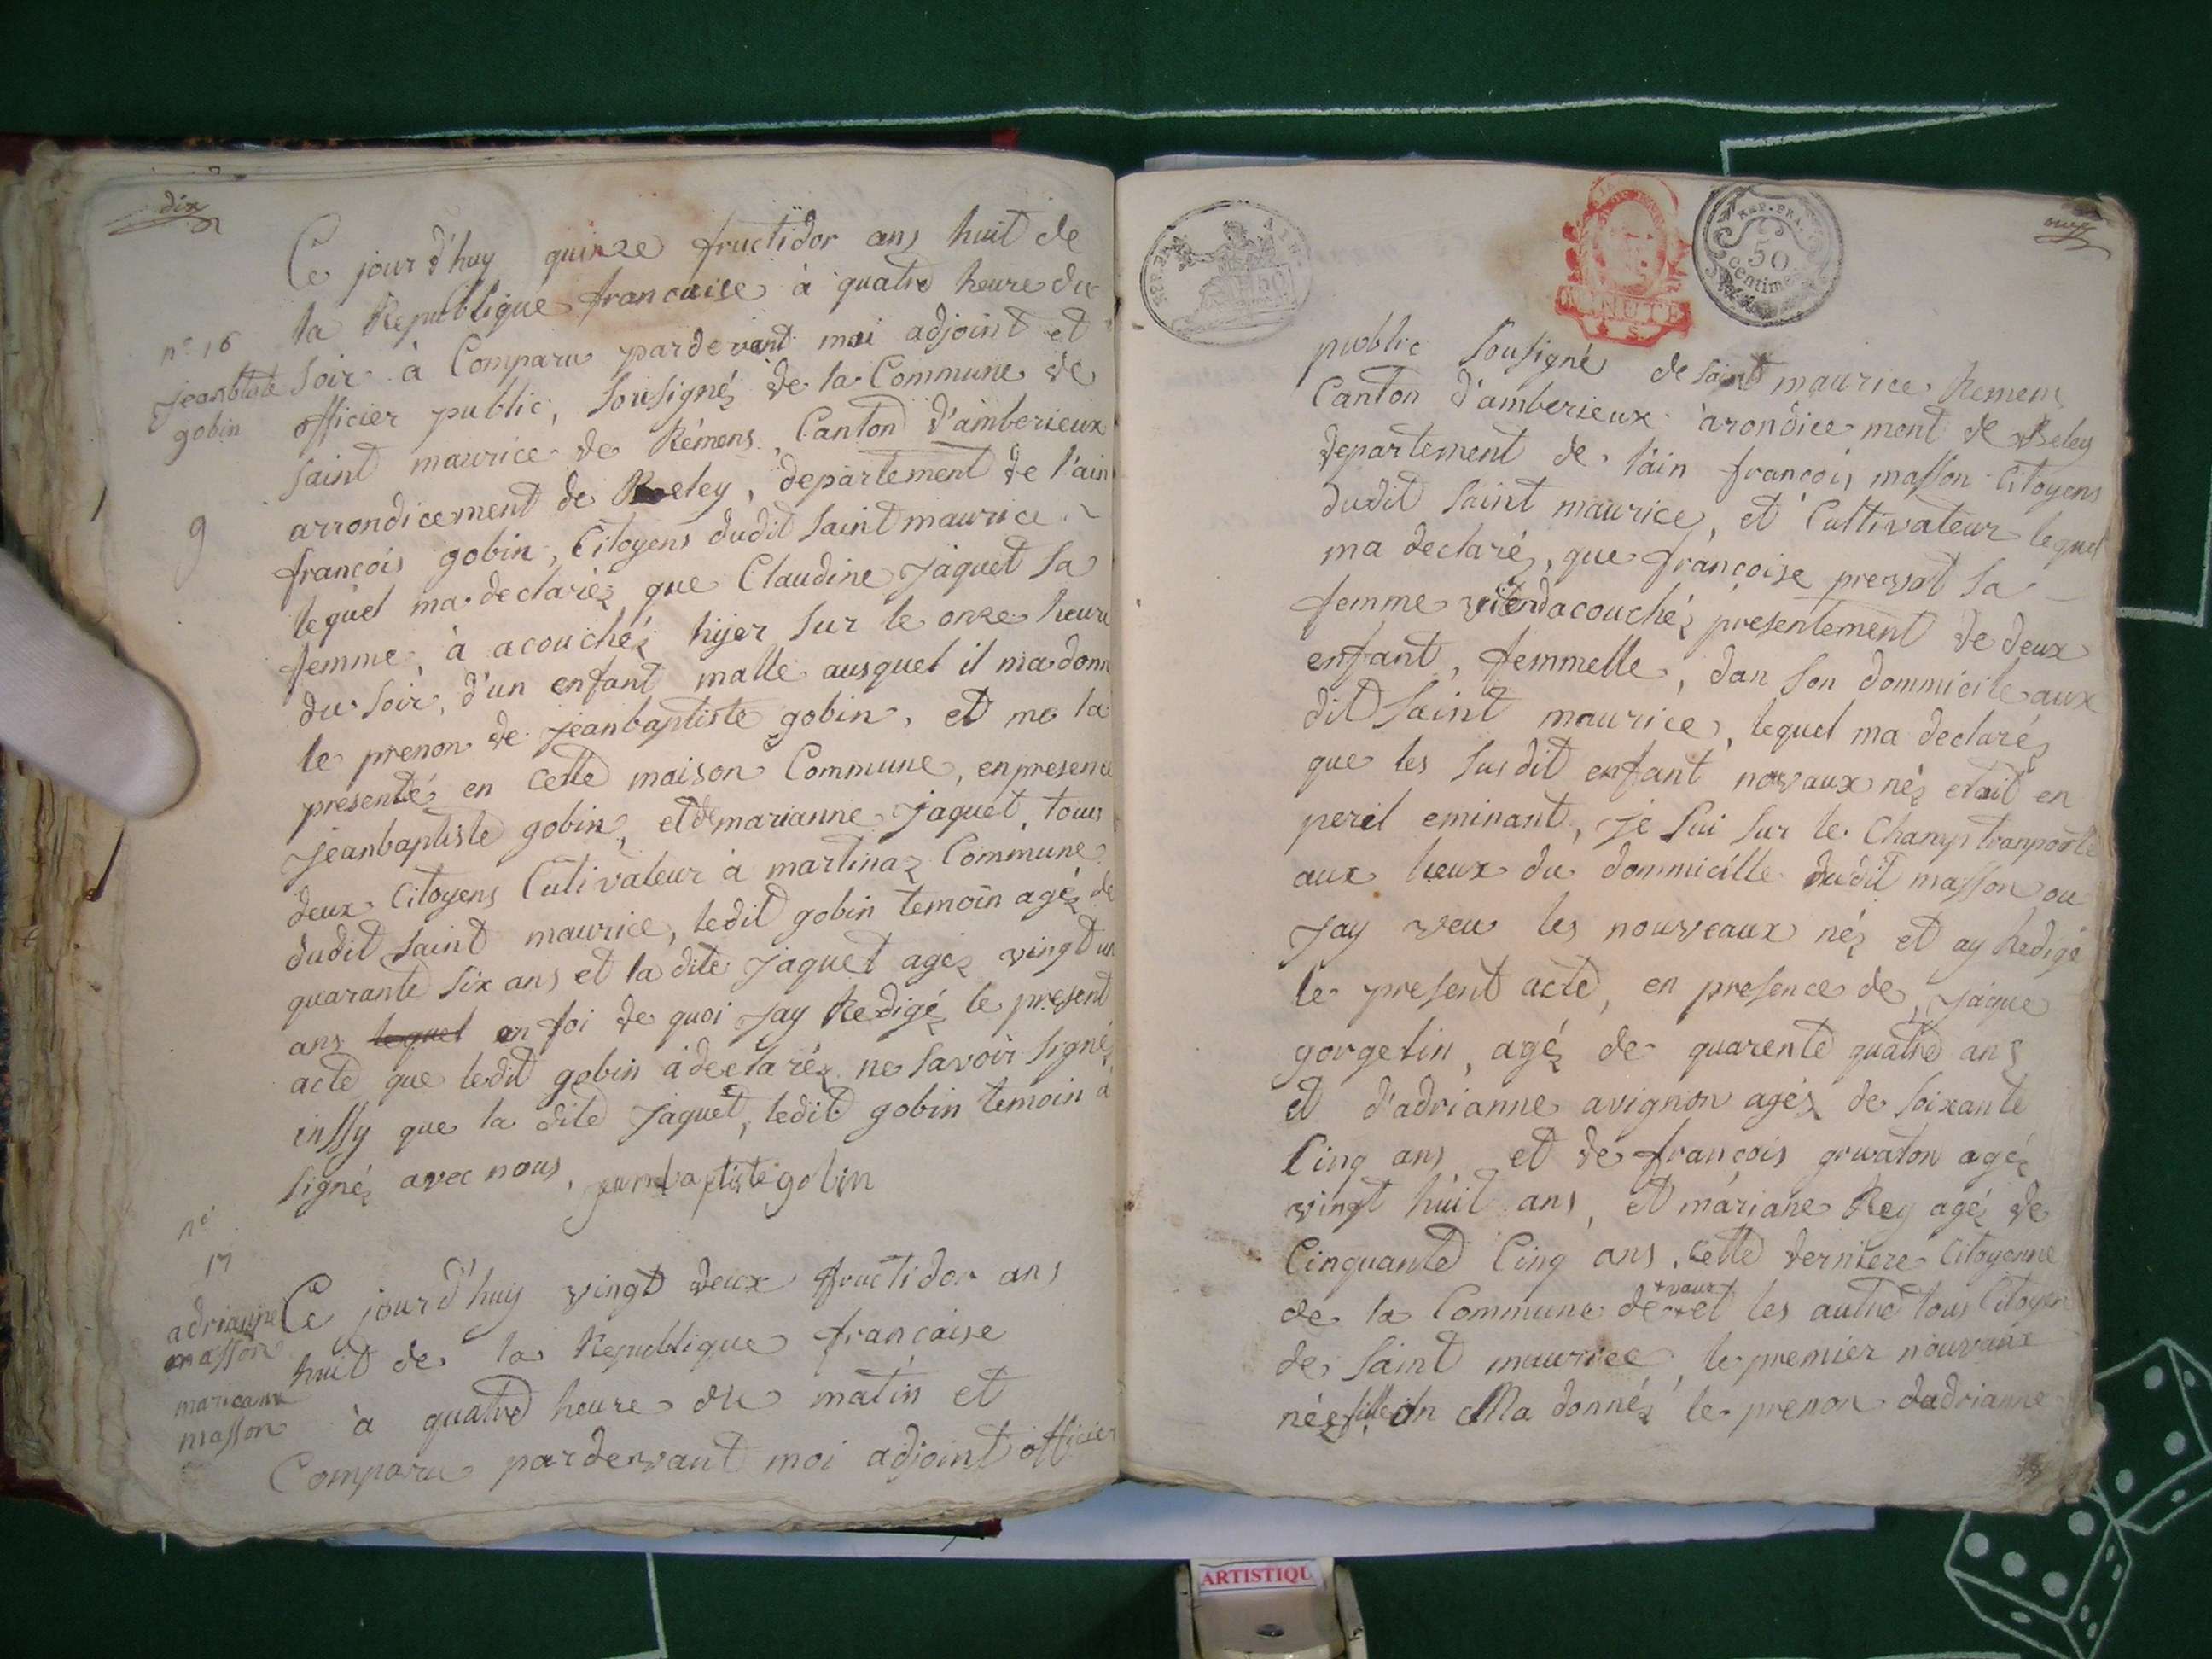 dix
Ce jour d'huy quinze fructidor ans huit de
la Republique francaise à quatre heure du
n° 16
jeanbtiste
gobin
soir à Comparu pardevant moi adjoint et
officier public, sousigné de la Commune de
saint maurice de Rémens, Canton d'amberieux
arrondicement de Beley, departement de l'ain
9
françois gobin, Citoyens dudit saint maurice
lequel ma declaréz que Claudine jaquet sa
femme, à acouchéz hyer sur le onze heure
du soir, d'un enfant malle ausquel il ma donn
le prenon de jeanbaptiste gobin, et me la
presenté en cette maison Commune, en presence
jeanbaptiste gobin, et de marianne jaquet, tous
deux Citoyens Cultivateur à martinaz Commune
dudit saint maurice, ledit gobin temoin agéz de
quarante six ans et la dite jaquet agéz vingt un
ans lequel en foi de quoi jay Redigéz le present
acte que ledit gobin à declaréz ne savoir signé
inssy que la dite jaquet, ledit gobin temoin à
signéz avec nous, jeanbaptiste gobin
n°
17
adrianne
masson
marianne
masson
Ce jour d'huy vingt deux fructidor ans
huit de la Republique française
à quatre heure du matin et
Comparu pardervant moi adjoint officier
REP. FRA.
50
MINUTE
REP. FRA.
50
centimes
onze
public sousigné de saint maurice Remens
Canton d'amberieux arondicement de Beley
departement de l'ain françois masson Citoyens
dudit saint maurice, et Cultivateur lequel
ma declaré, que françoise prevot sa
femme vien dacouchéz presentement de deux
enfant, femmelle, dan son dommicile aux
dit saint maurice, lequel ma declaréz
que les susdit enfant novaux néz etait en
peril eminant, je sui sur le Champ tranporte
aux lieux du dommicille dudit masson ou
jay veu les nouveaux néz et ay Redigé
le present acte, en presence de, jaque
gorgelin, agéz de quarente quatre ans
et d'adrianne avignon agéz de soixante
Cinq ans, et de françois gruaton agéz
vingt huit ans, et mariane Rey agéz de
Cinquante Cinq ans, cette derniere Citoyenne
de la Commune de vaux et les autre tous Citoyen
de saint maurice, le premier nouvaux
néz fille on Ma donnéz le prenon dadrianne
ARTISTIQU